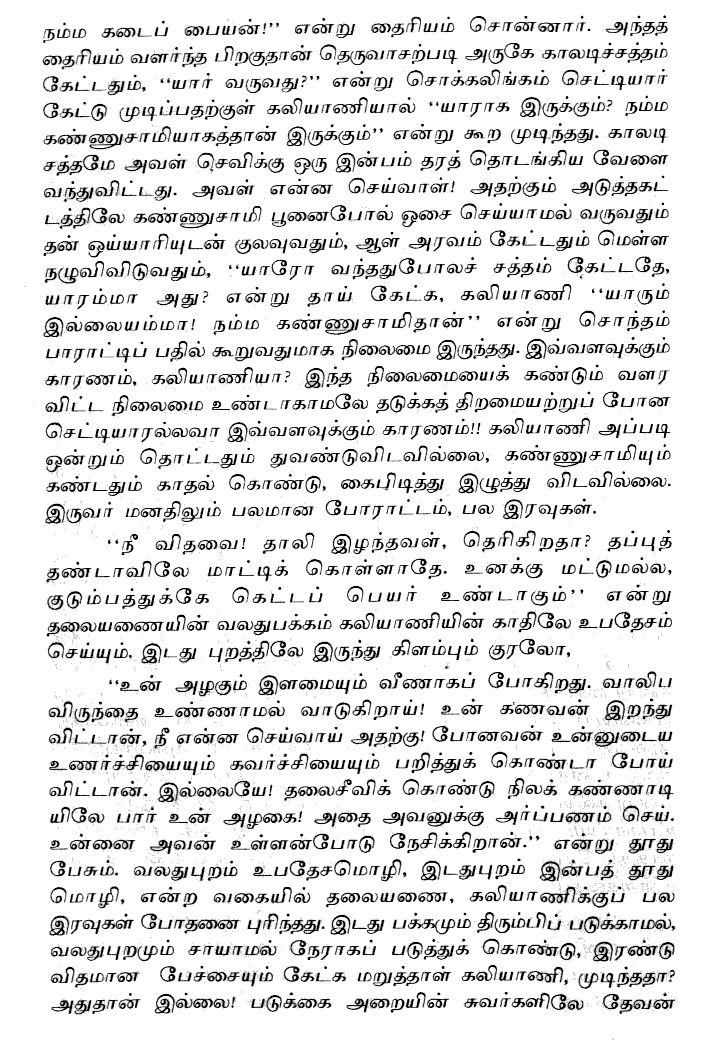 நம்ம கடைப் பையன்!’’ என்று தைரியம் சொன்னார். அந்தத்
தைரியம் வளர்ந்த பிறகுதான் தெருவாசற்படி அருகே காலடிச்சத்தம்
கேட்டதும், ‘‘யார் வருவது?’’ என்று சொக்கலிங்கம் செட்டியார்
கேட்டு முடிப்பதற்குள் கலியாணியால் ‘‘யாராக இருக்கும்? நம்ம
கண்ணுசாமியாகத்தான் இருக்கும்’’ என்று கூற முடிந்தது. காலடி
சத்தமே அவள் செவிக்கு ஒரு இன்பம் தரத் தொடங்கிய வேளை
வந்துவிட்டது. அவள் என்ன செய்வாள்! அதற்கும் அடுத்தகட்
டத்திலே கண்ணுசாமி பூனைபோல் ஓசை செய்யாமல் வருவதும்
தன் ஒய்யாரியுடன் குலவுவதும், ஆள் அரவம் கேட்டதும் மெள்ள
நழுவிவிடுவதும், ‘‘யாரோ வந்ததுபோலச் சத்தம் கேட்டதே,
யாரம்மா அது? என்று தாய் கேட்க, கலியாணி ‘‘யாரும்
இல்லையம்மா! நம்ம கண்ணுசாமிதான்’’ என்று சொந்தம்
பாராட்டிப் பதில் கூறுவதுமாக நிலைமை இருந்தது. இவ்வளவுக்கும்
காரணம், கலியாணியா? இந்த நிலைமையைக் கண்டும் வளர
விட்ட நிலைமை உண்டாகாமலே தடுக்கத் திறமையற்றுப் போன
செட்டியாரல்லவா இவ்வளவுக்கும் காரணம்!! கலியாணி அப்படி
ஒன்றும் தொட்டதும் துவண்டுவிடவில்லை, கண்ணுசாமியும்
கண்டதும் காதல் கொண்டு, கைபிடித்து இழுத்து விடவில்லை.
இருவர் மனதிலும் பலமான போராட்டம், பல இரவுகள்.
‘‘நீ விதவை! தாலி இழந்தவள், தெரிகிறதா? தப்புத்
தண்டாவிலே மாட்டிக் கொள்ளாதே. உனக்கு மட்டுமல்ல,
குடும்பத்துக்கே கெட்டப் பெயர் உண்டாகும்’’ என்று
தலையணையின் வலதுபக்கம் கலியாணியின் காதிலே உபதேசம்
செய்யும். இடது புறத்திலே இருந்து கிளம்பும் குரலோ,
‘‘உன் அழகும் இளமையும் வீணாகப் போகிறது. வாலிப
விருந்தை உண்ணாமல் வாடுகிறாய்! உன் கணவன் இறந்து
விட்டான், நீ என்ன செய்வாய் அதற்கு! போனவன் உன்னுடைய
உணர்ச்சியையும் கவர்ச்சியையும் பறித்துக் கொண்டா போய்
விட்டான். இல்லையே! தலைசீவிக் கொண்டு நிலக் கண்ணாடி
யிலே பார் உன் அழகை! அதை அவனுக்கு அர்ப்பணம் செய்.
உன்னை அவன் உள்ளன்போடு நேசிக்கிறான்.’’ என்று தூது
பேசும். வலதுபுறம் உபதேசமொழி, இடதுபுறம் இன்பத் தூது
மொழி, என்ற வகையில் தலையணை, கலியாணிக்குப் பல
இரவுகள் போதனை புரிந்தது. இடது பக்கமும் திரும்பிப் படுக்காமல்,
வலதுபுறமும் சாயாமல் நேராகப் படுத்துக் கொண்டு, இரண்டு
விதமான பேச்சையும் கேட்க மறுத்தாள் கலியாணி, முடிந்ததா?
அதுதான் இல்லை! படுக்கை அறையின் சுவர்களிலே தேவன்